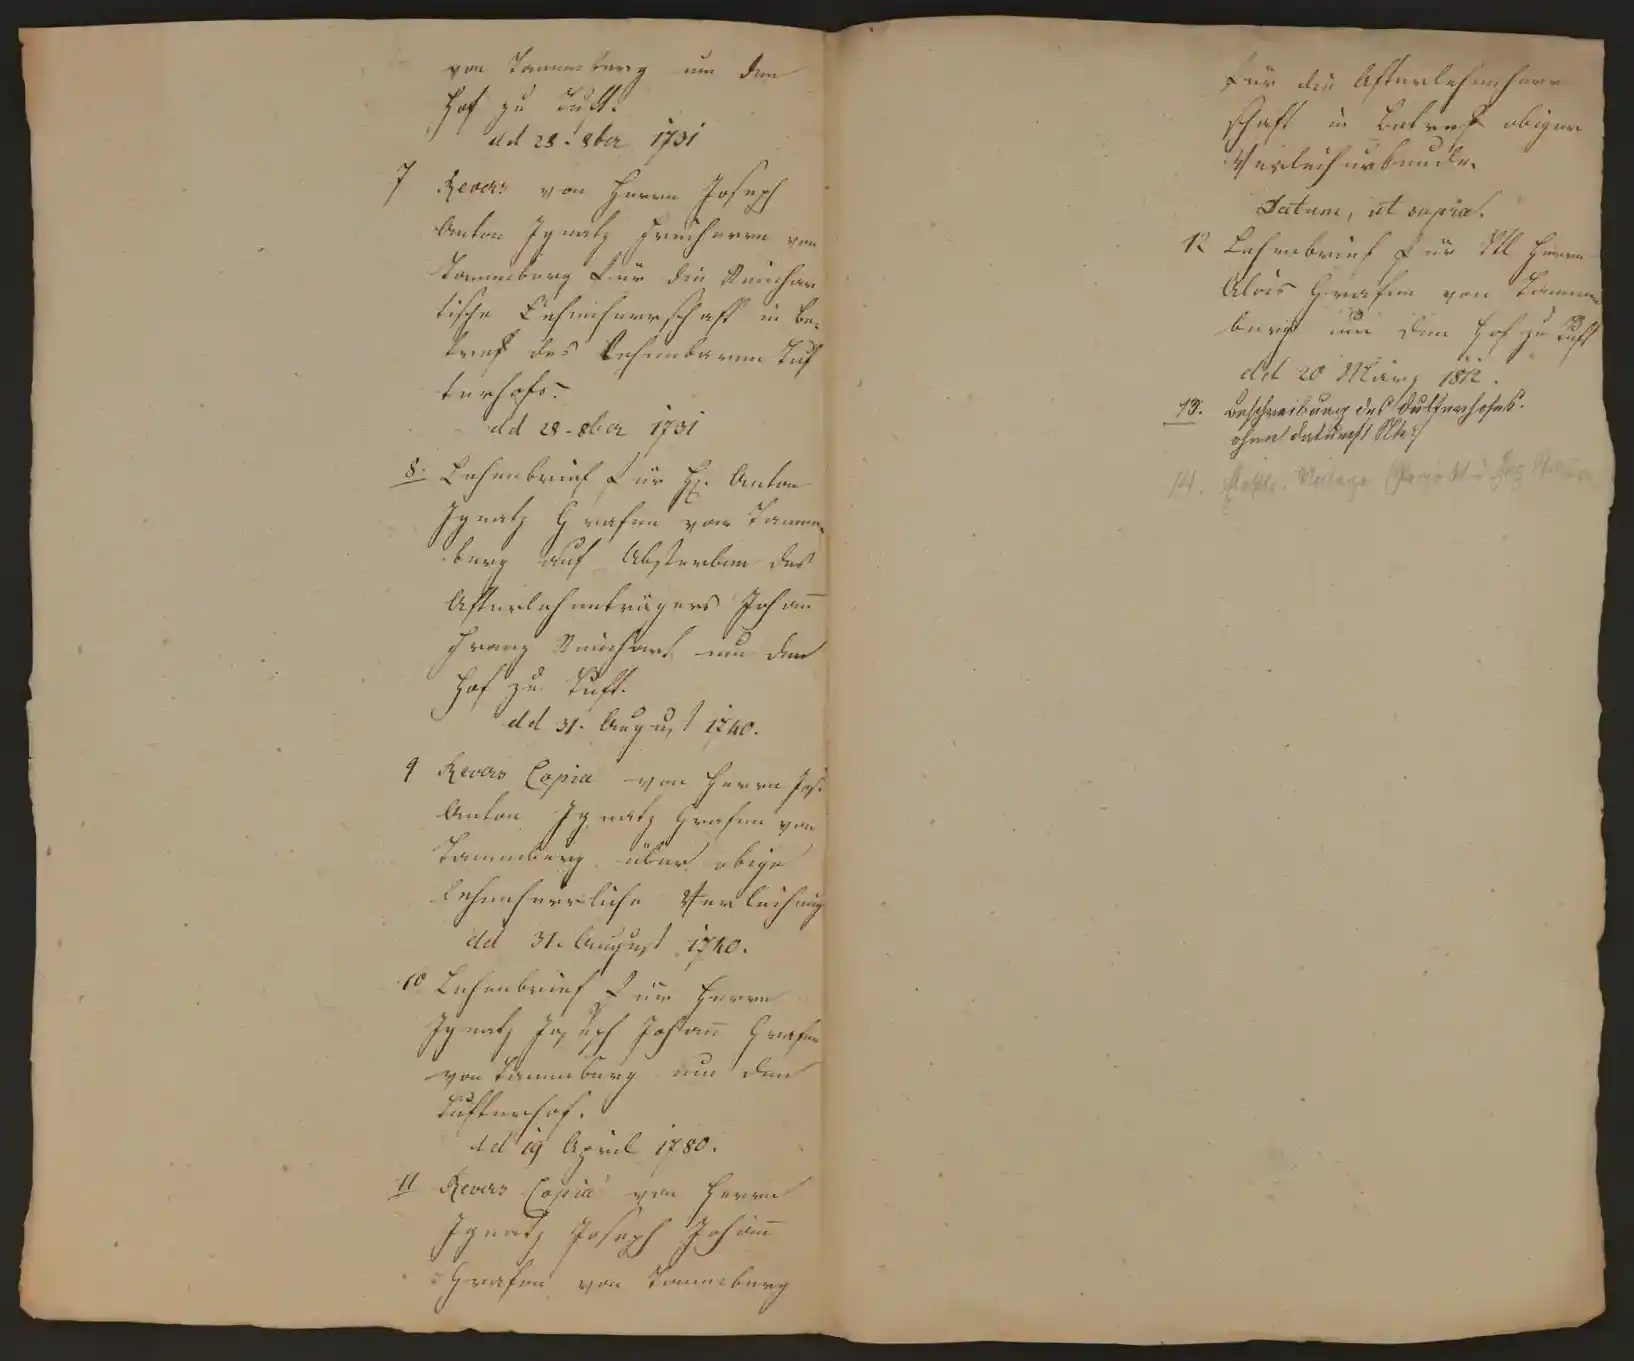 von Tannenberg um den
Hof zu Tuft.
dd 28. 8ber 1731
7 Revers von Herrn Joseph
Anton Ignatz Freiherrn von
Tannenberg für die Reichar
tische Lehenherrschaft in Be-
tref des lehenbaren Tuf
terhofs.
dd 28. 8ber 1731
8. Lehenbrief für H. Anton
Ignatz Grafen von Tannen-
berg auf Absterben des
Afterlehenträgers Johan̄
Franz Reichart um den
Hof zu Tuft.
dd 31. August 1740.
9 Revers Copia von Herrn Jos.
Anton Ignatz Grafen von
Tannenberg über obige
lehenherrliche Verleihung
dd 31. August 1740.
10 Lehenbrief für Herrn
Ignatz Joseph Johan̄ Grafen
von Tannenberg um den
Tufterhof.
dd 19 April 1780.
11 Revers Copia von Herrn
Ignatz Joseph Johan̄
Grafen von Tannenberg
für die Afterlehenherr
schaft in Betref obiger
Verleihurkunde.
Datum, ut supra.
12 Lehenbrief für Herrn
Alois Grafen von Tannen
berg um den Hof zu Tuft
dd 20 März 1812.
13. Beschreibung des Tufterhofes.
ohne Datum
14.